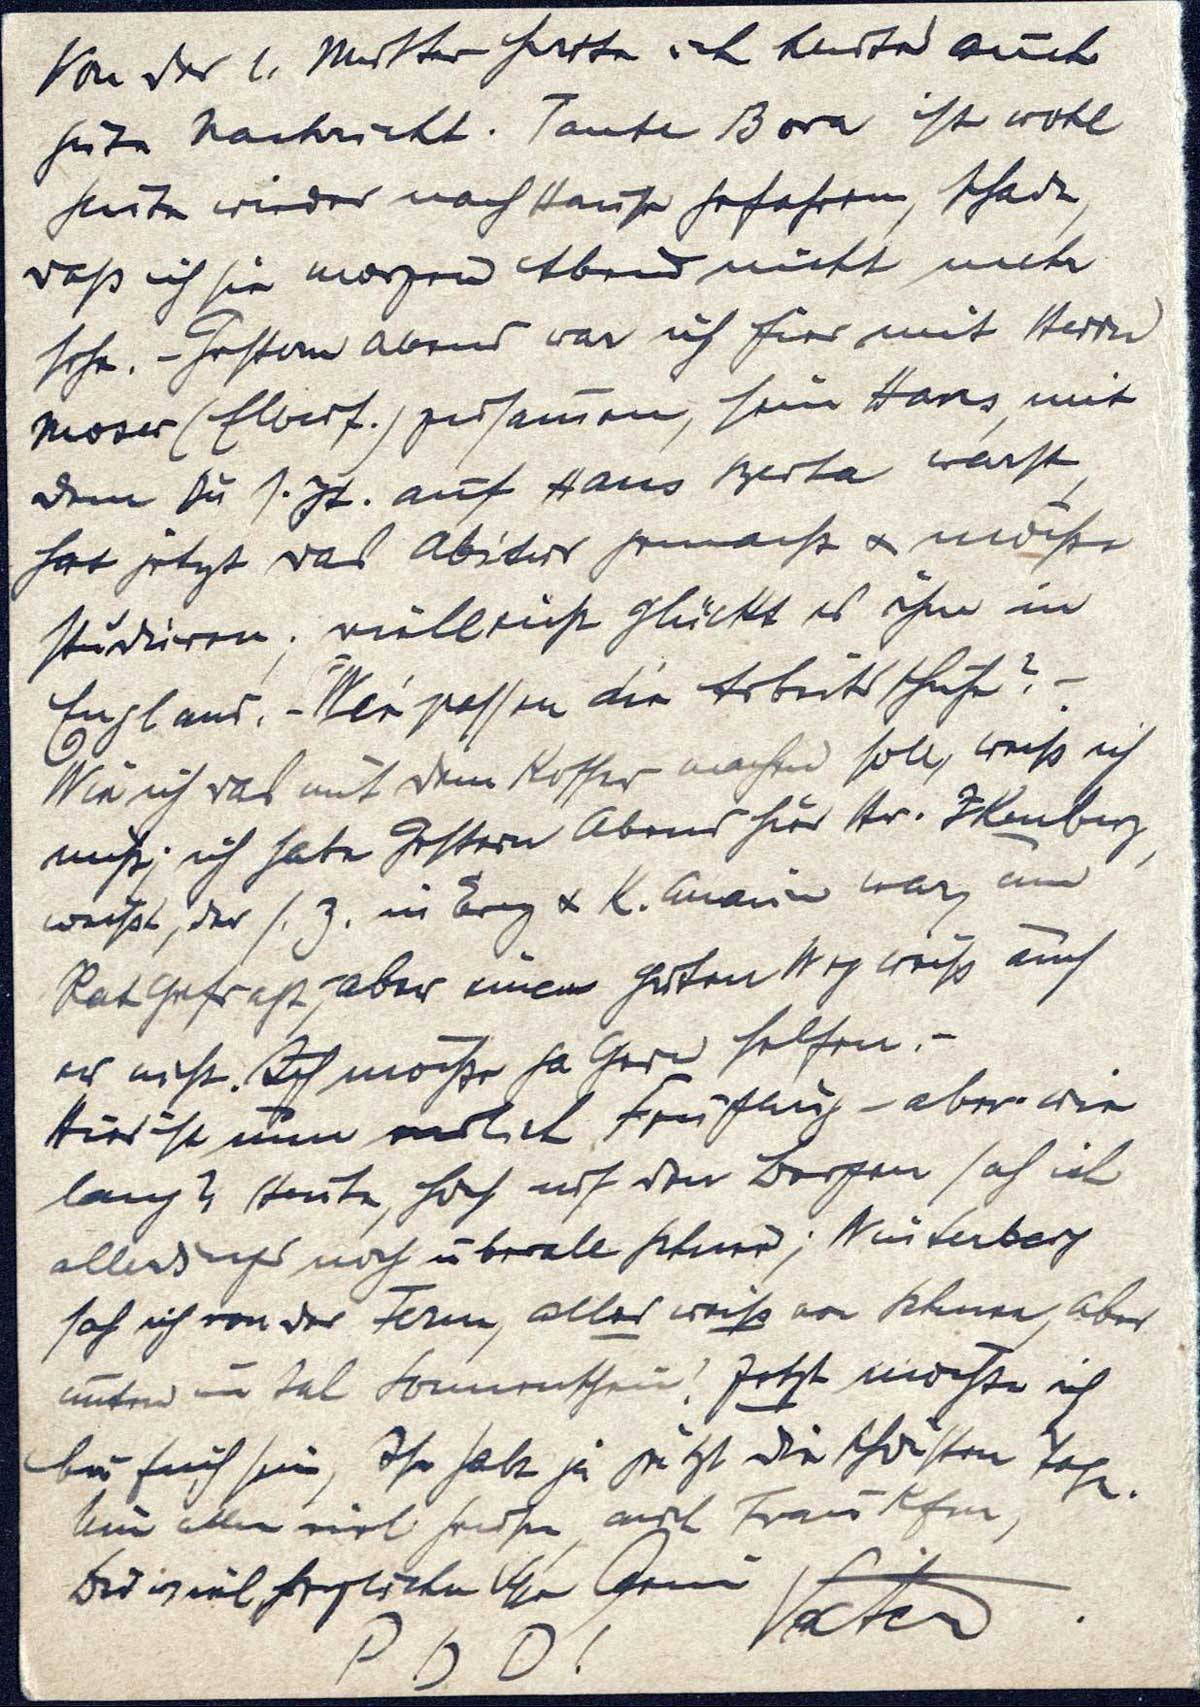 Von der l. Mutter hatte ich heute auch
gute Nachricht. Tante Bora ist wohl
heute wieder nach Hause gefahren, schade,
daß ich sie morgen Abend nicht mehr
sehe. – Gestern Abend war ich hier mit Herrn
Moser (Elberf.) zusammen, sein Hans, mit
dem Du s. Zt. auf Haus Berta warst,
hat jetzt das Abitur gemacht & möchte
studieren; vielleicht glückt es ihm in
England. – Wie passen die Arbeitsschuhe? –
Wie ich das mit dem Koffer machen soll, weiß ich
nicht; ich habe gestern Abend hier Hr. Ikenberg,
weißt, der s. Z. in Erez & K. war, um
Rat gefragt, aber einen guten Weg weiß auch
er nicht. Ich möchte ja gern helfen. –
Hier ist nun endlich Frühling – aber wie
lang? Heute, hoch auf den Bergen sah ich
allerdings noch überall Schnee; Winterberg
sah ich von der Ferne, alles weiß von Schnee, aber
unten im Tal Sonnenschein! Jetzt möchte ich
bei Euch sein, Ihr habt ja jetzt die schönsten Tage.
Nun allen viel Grüße, auch
Dir viel herzliche
Vater